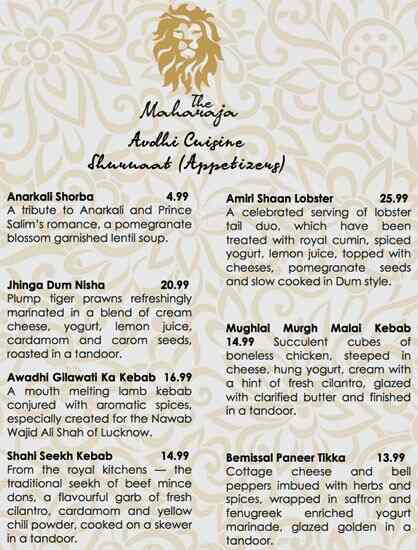 The
Maharaja
Avdhi Cuisine
Shuruaat (Appetizers)
Anarkali Shorba 4.99
A tribute to Anarkali and Prince
Salim's romance, a pomegranate
blossom garnished lentil soup.
Jhinga Dum Nisha 20.99
Plump tiger prawns refreshingly
marinated in a blend of cream
cheese, yogurt, lemon juice,
cardamom and carom seeds,
roasted in a tandoor.
Awadhi Gilawati Ka Kebab 16.99
A mouth melting lamb kebab
conjured with aromatic spices,
especially created for the Nawab
Wajid Ali Shah of Lucknow.
Shahi Seekh Kebab 14.99
From the royal kitchens — the
traditional seekh of beef mince
dons, a flavourful garb of fresh
cilantro, cardamom and yellow
chili powder, cooked on a skewer
in a tandoor.
Amiri Shaan Lobster 25.99
A celebrated serving of lobster
tail duo, which have been
treated with royal cumin, spiced
yogurt, lemon juice, topped with
cheeses, pomegranate seeds
and slow cooked in Dum style.
Mughlai Murgh Malai Kebab
14.99 Succulent cubes of
boneless chicken, steeped in
cheese, hung yogurt, cream with
a hint of fresh cilantro, glazed
with clarified butter and finished
in a tandoor.
Bemissal Paneer Tikka 13.99
Cottage cheese and bell
peppers imbued with herbs and
spices, wrapped in saffron and
fenugreek enriched yogurt
marinade, glazed golden in a
tandoor.